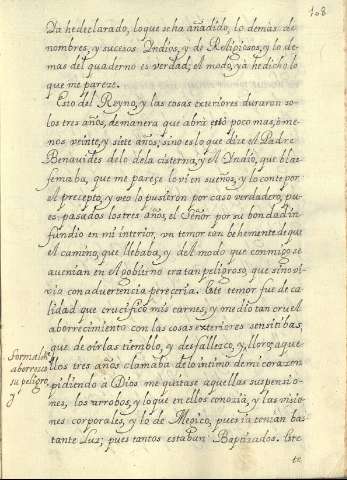 108
Ya he declarado, lo que se ha añadido, lo demás de
nombres, y sucesos Yndios, y de Religiosos, y lo de
mas del quaderno es verdad; el modo, ya he dicho lo
que me pareze.
Esto del Reyno, y las cosas exteriores duraron so-
los tres años, de manera que abrá esto poco mas, ó me
nos veinte, y siete años, sino es lo que dize el Padre
Benauides de lo de la cisterna, y el Yndio, que blas
femaba, que me pareçe lo vi en sueños, y lo conte por
el precepto, y veo lo pusieron por caso verdadero, pu-
es pasados los tres años, el Señor por su bondad in
fundio en mi interior, un temor tan behemente de que
el camino, que llebaba, y del modo que conmigo se
auenian en el gobierno era tan peligroso, que sino vi-
uia con aduertencia pereçeria. Este temor fue de ca
lidad que crucificó mis carnes, y me dio tan cruel
aborrecimiento con las cosas exteriores sensitibas
que de oirlas tiemblo, y desfallezco, y lloro; aque
llos tres años clamaba de lo intimo de mi corazon
pidiendo á Dios me quitase aquellas suspensio-
nes, los arrobos, y lo que en ellos conozia, y las visio
nes corporales, y lo de Mexico, pues ia tenian bas
tante Luz; pues tantos estaban Baptizados. Este
te
aborrezia
su peligro,
y